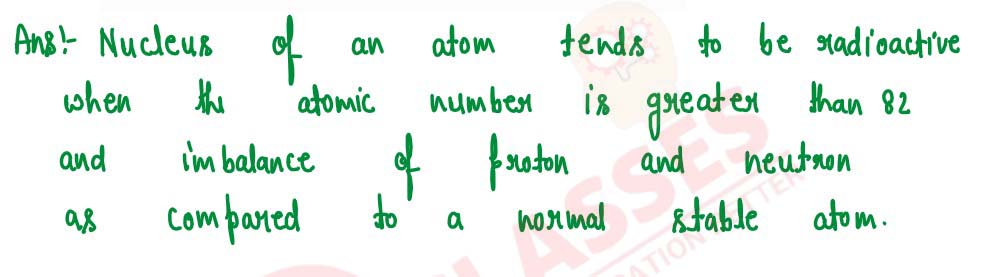 Ans:- Nucleus of an atom tends to be radioactive
when the atomic number is greater than 82
and imbalance of proton and neutron
as compared to a normal stable atom.